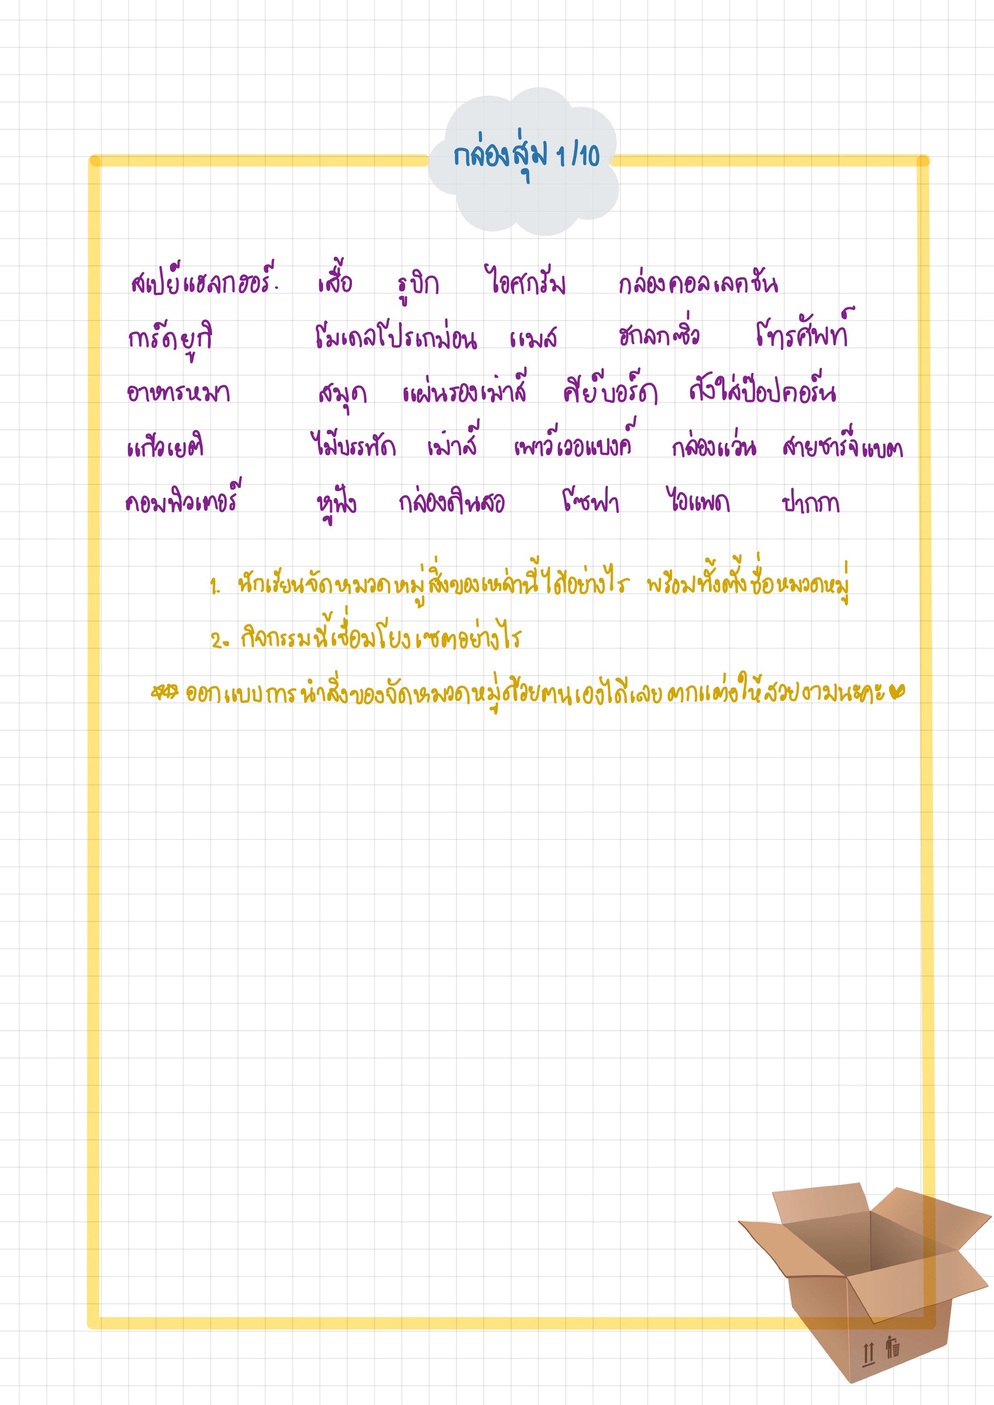 กล่องสุ่ม 1/10
สเปย์แฮลกฮอร์. เสื้อ รูบิก ไอศกรีม กล่องคอลเลคชัน
การ์ดยูกิ โมเดลโปเกม่อน แมส ฮกลกซิ่ว โทรศัพท์
อาหารหมา สมุด แผ่นรองเม้าส์ คีย์บอร์ด ถังใส่ป๊อปคอร์น
แก้วเยติ ไม้บรรทัด เม้าส์ เพาว์เวอแบงค์ กล่องแว่น สายชาร์จแบต
คอมพิวเตอร์ หูฟัง กล่องดินสอ โซฟา ไอแพด ปากกา
1. นักเรียนจัดหมวดหมู่สิ่งของเหล่านี้ได้อย่างไร พร้อมทั้งตั้งชื่อหมวดหมู่
2. กิจกรรมนี้เชื่อมโยงเซตอย่างไร
*** ออกแบบการนำสิ่งของจัดหมวดหมู่ด้วยตนเองได้เลย ตกแต่งให้สวยงามนะคะ ♥